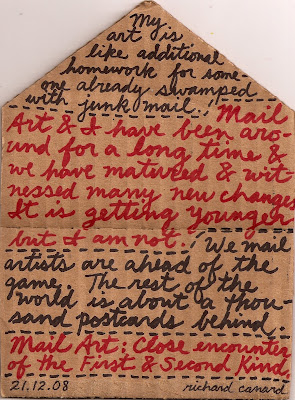 My
art is
like additional
homework for some-
one already swamped
with junk mail. Mail
Art & I have been aro-
und for a long time &
we have matured & wit-
nessed many new changes
It is getting younger
but I am not. We mail
artists are ahead of the
game. The rest of the
world is about a thou-
sand postcards behind.
Mail Art: Close encounter
of the First & Second Kind.
21.12.08 richard canard